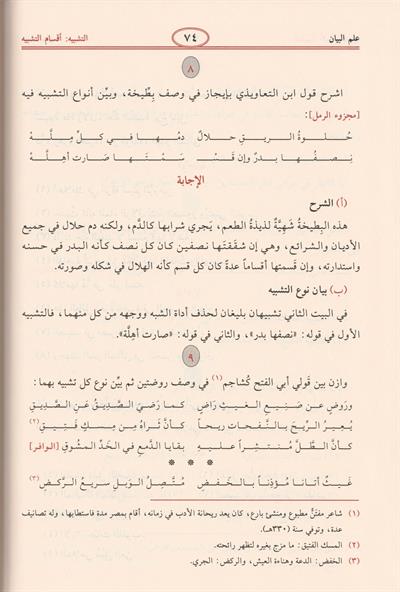 علم البيان ٧٤ التشبيه: أقسام التشبيه
٨
اشرح قول ابن التعاويذي بإيجاز في وصف بِطّيخة، وبيِّن أنواع التشبيه فيه
[مجزوء الرمل]:
حُلوةُ الريقِ حلالٌ دمُهـا فـي كـلِّ مِلَّـة
نِصفُـهـا بـدرٌ وإن قَسَّـ ـمْتَهـا صَـارت أهِلَّـة
الإجابة
(أ) الشرح
هذه البِطيخةُ شَهيَّةٌ لذيذةُ الطعم، يَجري شرابها كالدَّم، ولكنه دم حلال في جميع
الأديان والشرائع، وهي إن شقَقْتَها نصفين كان كل نصف كأنه البدر في حسنه
واستدارته، وإن قَسمتها أقساماً عدةً كان كل قسم كأنه الهلال في شكله وصورته.
(ب) بيان نوع التشبيه
في البيت الثاني تشبيهان بليغان لحذف أداة الشبه ووجهه من كل منهما، فالتشبيه
الأول في قوله: «نصفها بدر»، والثاني في قوله: «صارت أهِلّة».
٩
وازن بين قولَي أبي الفتح كُشاجم(١) في وصف روضتين ثم بيِّن نوع كل تشبيه بهما:
ورَوضٍ عن صَنِيعِ الغيثِ رَاضٍ كمـا رَضيَ الصَّديقُ عَنِ الصَّديقِ
يُعيـرُ الرِّيـحَ بالنَّفحـاتِ ريحـاً كأنَّ ثَراهُ مِن مِسكٍ فَتيـقِ(٢)
كـأنَّ الطَّـلَّ مُنتَشِـراً عليـه بقايا الدَّمعِ في الخَدِّ المشُوقِ [الوافر]
* * *
غَيـثٌ أتانـا مُؤذِنـاً بالخَفـضِ مُتَّصِلُ الوَبـلِ سَريعُ الرَّكـضِ(٣)
(١) شاعر مفتنٌّ مطبوع ومنشئ بارع، كان يعد ريحانة الأدب في زمانه، أقام بمصر مدة فاستطابها، وله تصانيف
عدة، وتوفي سنة (٣٣٠هـ).
(٢) المسك الفتيق: ما مزج بغيره لتظهر رائحته.
(٣) الخفض: الدعة وهناءة العيش، والركض: الجري.